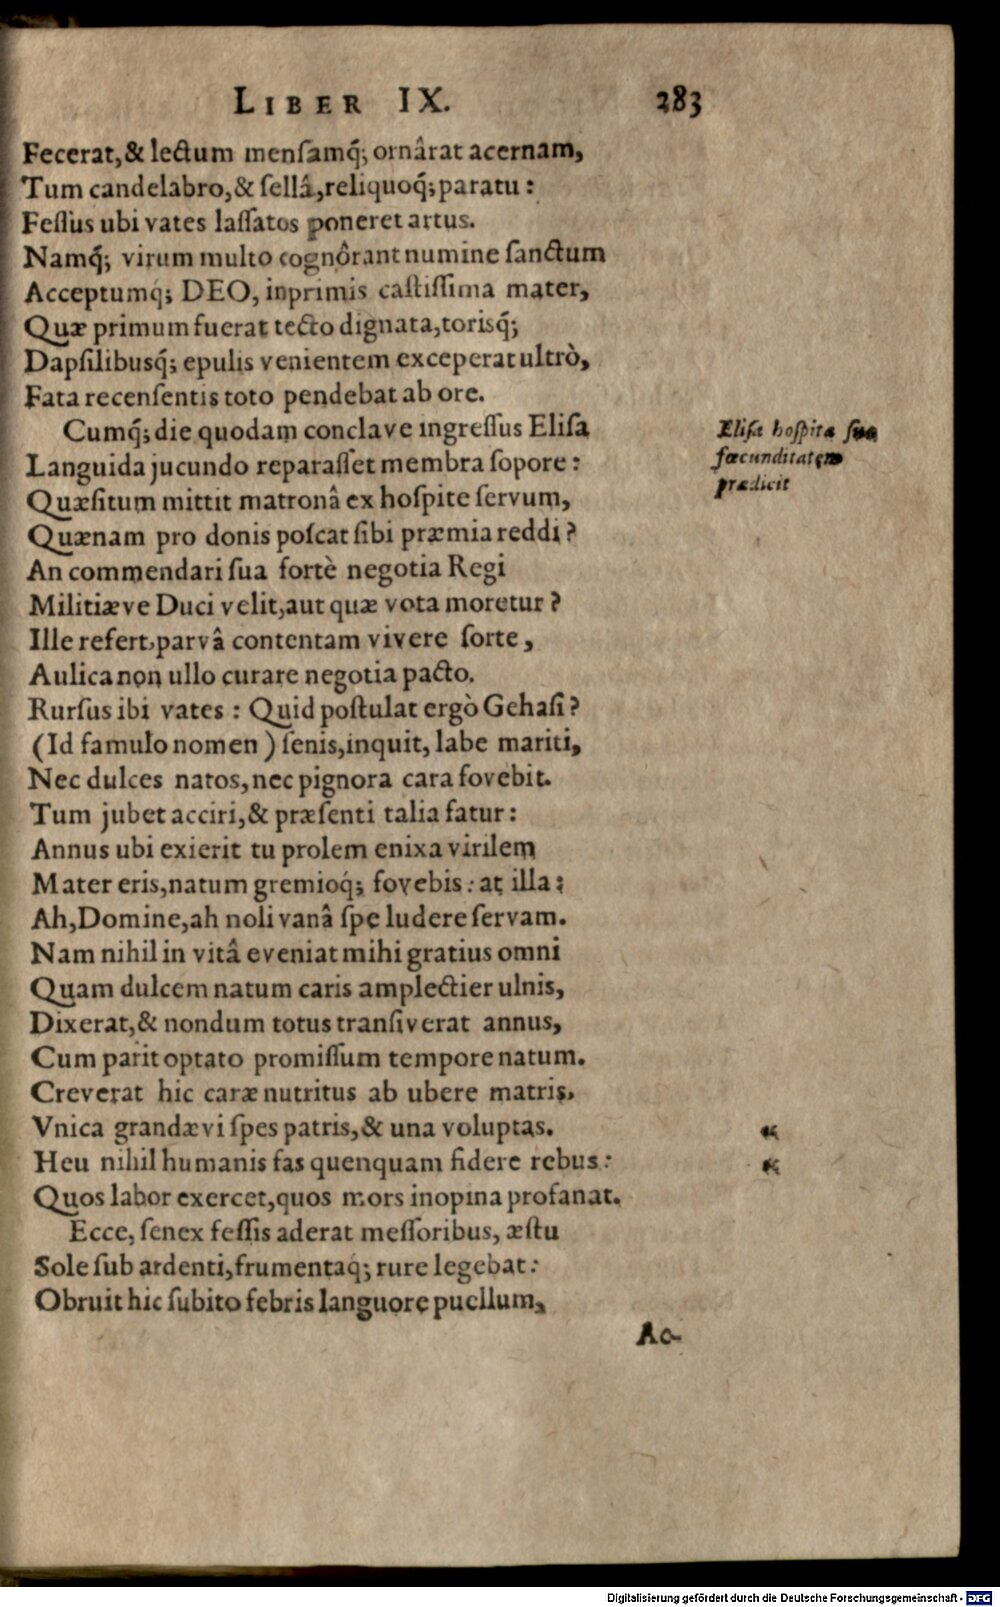 LIBER IX. 283
Fecerat,& lectum mensamq́; ornârat acernam,
Tum candelabro,& sellâ,reliquoq́;paratu:
Fessus ubi vates lassatos poneret artus.
Namq́; virum multo cognôrant numine sanctum
Acceptumq́; DEO, inprimis castissima mater,
Quæ primum fuerat tecto dignata,torisq́;
Dapsilibusq́; epulis venientem exceperat ultrò,
Fata recensentis toto pendebat ab ore.
Cumq́; die quodam conclave ingressus Elisa
Languida jucundo reparasset membra sopore:
Quæsitum mittit matronâ ex hospite servum,
Quænam pro donis poscat sibi præmia reddi?
An commendari sua fortè negotia Regi
Militiæve Duci velit,aut quæ vota moretur?
Ille refert,parvâ contentam vivere sorte,
Aulica non ullo curare negotia pacto.
Rursus ibi vates: Quid postulat ergò Gehasi?
(Id famulo nomen) senis,inquit, labe mariti,
Nec dulces natos,nec pignora cara fovebit.
Tum jubet acciri,& præsenti talia fatur:
Annus ubi exierit tu prolem enixa virilem
Mater eris,natum gremioq́; fovebis: at illa:
Ah,Domine,ah noli vanâ spe ludere servam.
Nam nihil in vitâ eveniat mihi gratius omni
Quam dulcem natum caris amplectier ulnis,
Dixerat,& nondum totus transiverat annus,
Cum parit optato promissum tempore natum.
Creverat hic caræ nutritus ab ubere matris,
Vnica grandævi spes patris,& una voluptas.
Heu nihil humanis fas quenquam fidere rebus:
Quos labor exercet,quos mors inopina profanat.
Ecce, senex fessis aderat messoribus, æstu
Sole sub ardenti,frumentaq́; rure legebat:
Obruit hic subito febris languore puellum,
Ac-
Elisa hospitæ suæ
fœcunditatem
prædicit
“
“
Digitalisierung gefördert durch die Deutsche Forschungsgemeinschaft - DFG